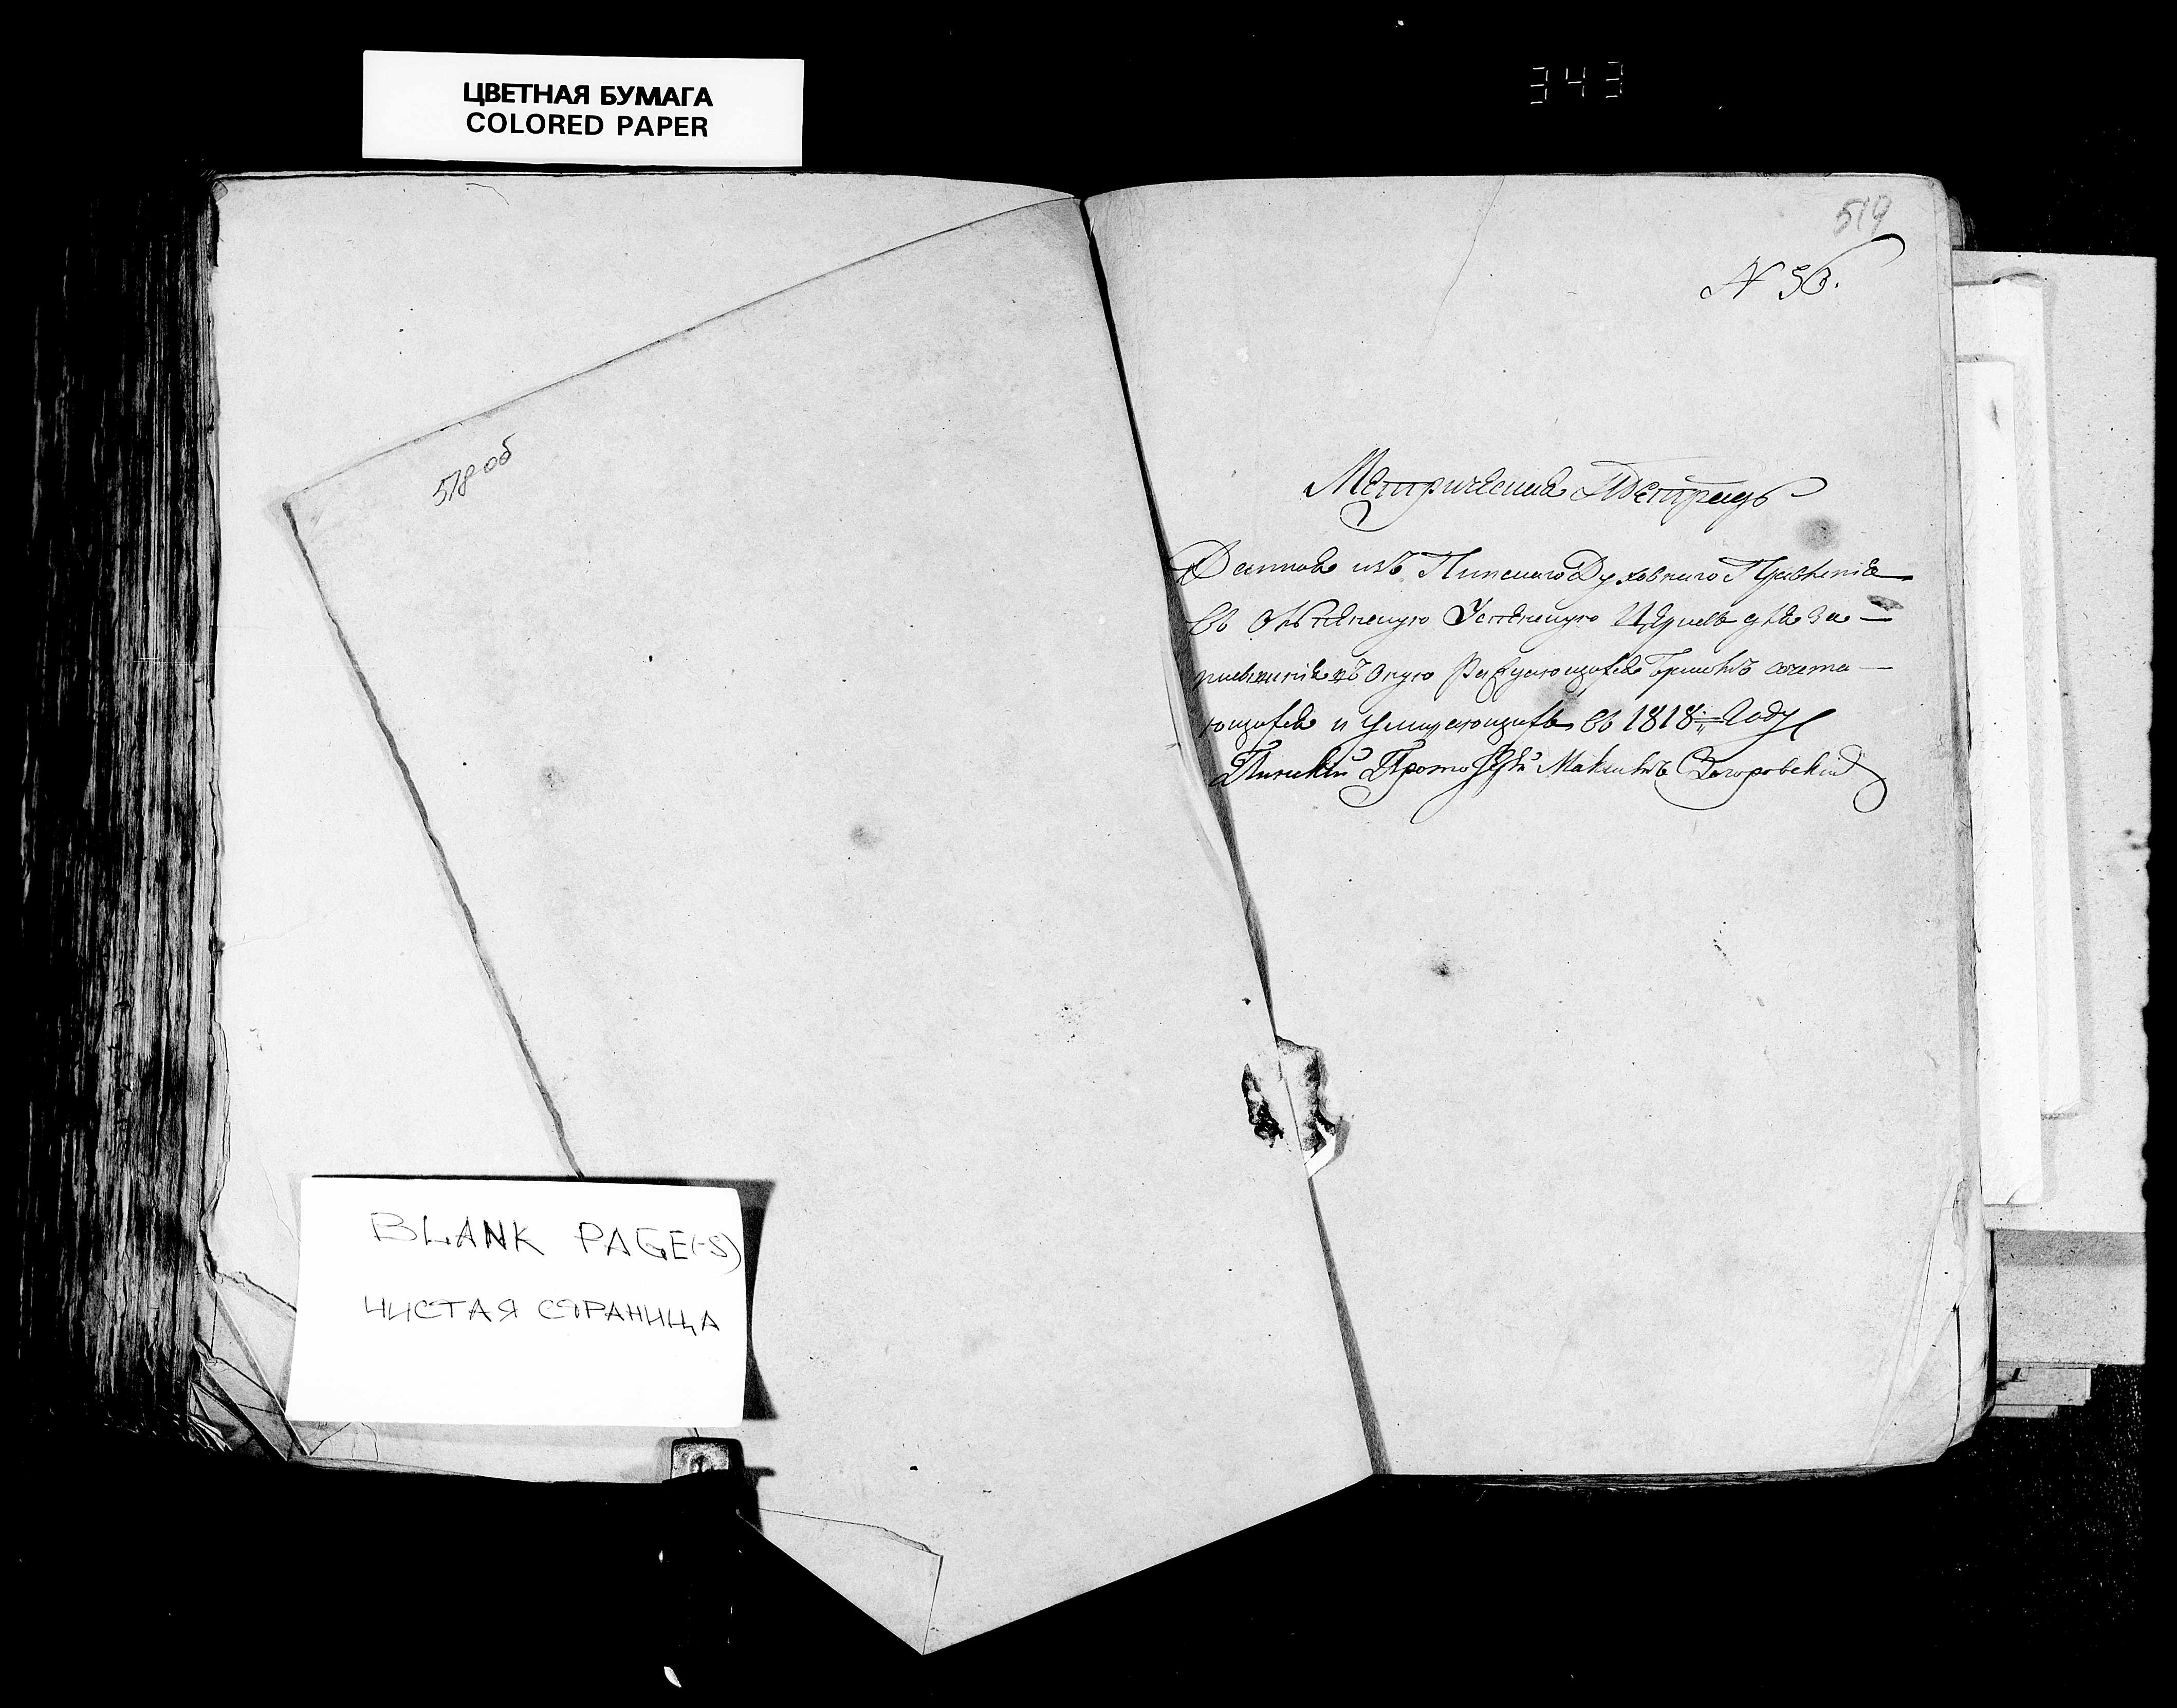 ЦВЕТНАЯ БУМАГА
COLORED PAPER
343
518 об
BLANK PAGE(-S)
ЧИСТАЯ СТРАНИЦА
519
N 56.
Метрическая Тетрадь
Данная изъ Пинскаго Духовнаго Правленія
въ Успенскую Церковь для за-
писыванія въ оную Раждающихся Бракомъ сочета-
ющихся и Умирающихъ въ 1818 Году
Пинскій Протоіерей Максимъ